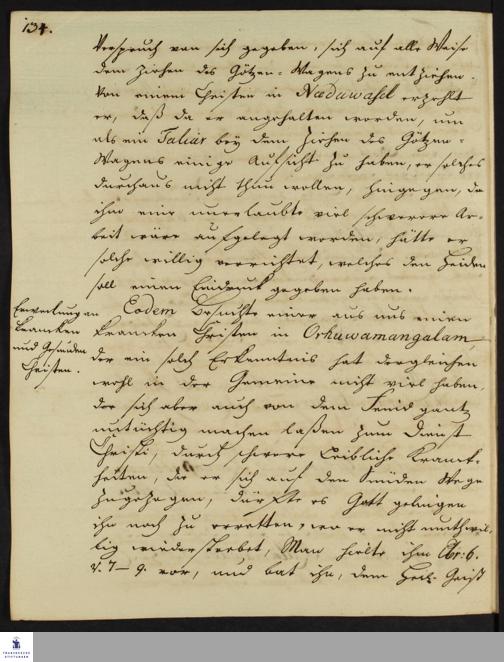 134.
Verspruch von sich gegeben, sich auf alle Weise
dem Ziehen des Götzen-Wagens zu entziehen.
Von einem Christen in Naduwasel erzehlt
er, daß da er angehalten worden, um
als ein Taliar bey dem Ziehen des Götzen-
Wagens einige Aufsicht zu haben, er solches
durchaus nicht thun wollen, hingegen, da
ihm eine unerlaubte viel schwerere Ar-
beit wäre aufgelegt worden, hätte er
solche willig verrichtet, welches den Heiden
soll einen Eindruck gegeben haben.
Erweckung an
Krancken
und Gesunden
Christen.
Eodem besuchte einer aus uns einen
krancken Christen in Orhuwamangalam,
der ein solch Erkenntnis hat dergleichen
wohl in der Gemeine nicht viel haben,
der sich aber auch von dem Feind gantz
untüchtig machen laßen zum Dienst
Christi, durch schwere Leibliche Kranck-
heiten, die er sich auf den Sünden Wege
zugezogen, dürfte es Gott gelingen
ihn noch zu erretten, wo er nicht muthwil-
lig wiederstrebet, Man hielte ihm Ebr: 6.
v. 7-9. vor, und bat ihn, dem Heil. Geist
FRANCKESCHE
STIFTUNGEN